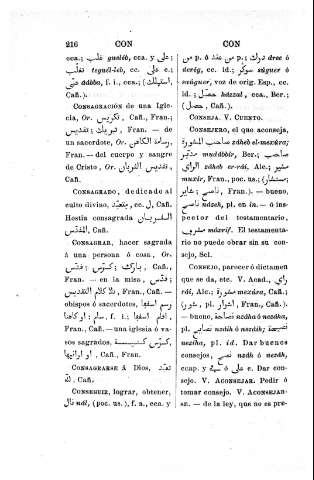 216 CON CON
cca.; غلب gualéb, cca. y على;
تغلب tegual-leb, cc. على e.;
دبّى dábbo, f. i., cca. (استهلك,
Cañ.).
CONSAGRACIÓN de una Igle-
cia, Or. تكريس, Cañ., Or.
تقديس; تبريك, Fran. — de
un sacerdote, Or. رسامة الكاهن,
Fran. — del cuerpo y sangre
de Cristo, Or. تقديس القربان,
Cañ.
CONSAGRADO, dedicado al
culto divino, متعبّد, cc. ل, Cañ.
Hostia consagrada القربان
المقدّس, Cañ.
CONSAGRAR, hacer sagrada
á una persona ó cosa, Or.
قدّس; كرّس; بارك, Cañ.,
Fran. — en la misa, قدّس;
تلا كلام التقديس, Fran., Cañ. —
obispos ó sacerdotes, وسم اسقفا
او كاهنا; سام, f. i.; اقام اسقفا,
Fran., Cañ. — una iglesia ó va-
sos sagrados, كرّس كنيسة,
او اوانيها, Cañ., Fran.
CONSAGRARSE á Dios, تعبّد
لله, Cañ.
CONSEGUIR, lograr, obtener,
نال nál, (poc. us.), f. a., cca. y
من p. ó عند p.; درك drec ó
derég, cc. id.; سكر súguer ó
suúguer, voz de orig. Esp., cc.
id.; حصّل házzal, cca., Ber.;
(حصل, Cañ.).
CONSEJA. V. CUENTO.
CONSEJERO, el que aconseja,
صاحب المشورة záheb el-mexúra;
مدبّر mudábbir, Ber.; صاحب
الراي záheb er-rái, Alc.; مشير
muxír, Fran., poc. us.; (مستشار,
Cañ.; ناصح, Fran.). — bueno,
ناصح náseh, pl. en ín. — ó ins-
pector del testamentario,
مشروف máxrif. El testamenta-
rio no puede obrar sin su con-
sejo, Scl.
CONSEJO, parecer ó dictamen
que se da, etc. V. Acad., راي
rái, Alc.; مشورة mexúra, Cañ.;
(شور, pl. اشوار, Fran., Cañ.).
— bueno, نصاحة nezáha ó nesáha,
pl. نصايح nzáih ó nezáih; نصيحة
nezíha, pl. id. Dar buenos
consejos, نصح nzáh ó nezáh,
ccap. y ل ó على e. Dar con-
sejo. V. ACONSEJAR. Pedir ó
tomar consejo. V. ACONSEJAR-
SE. — de la ley, que no es pre-